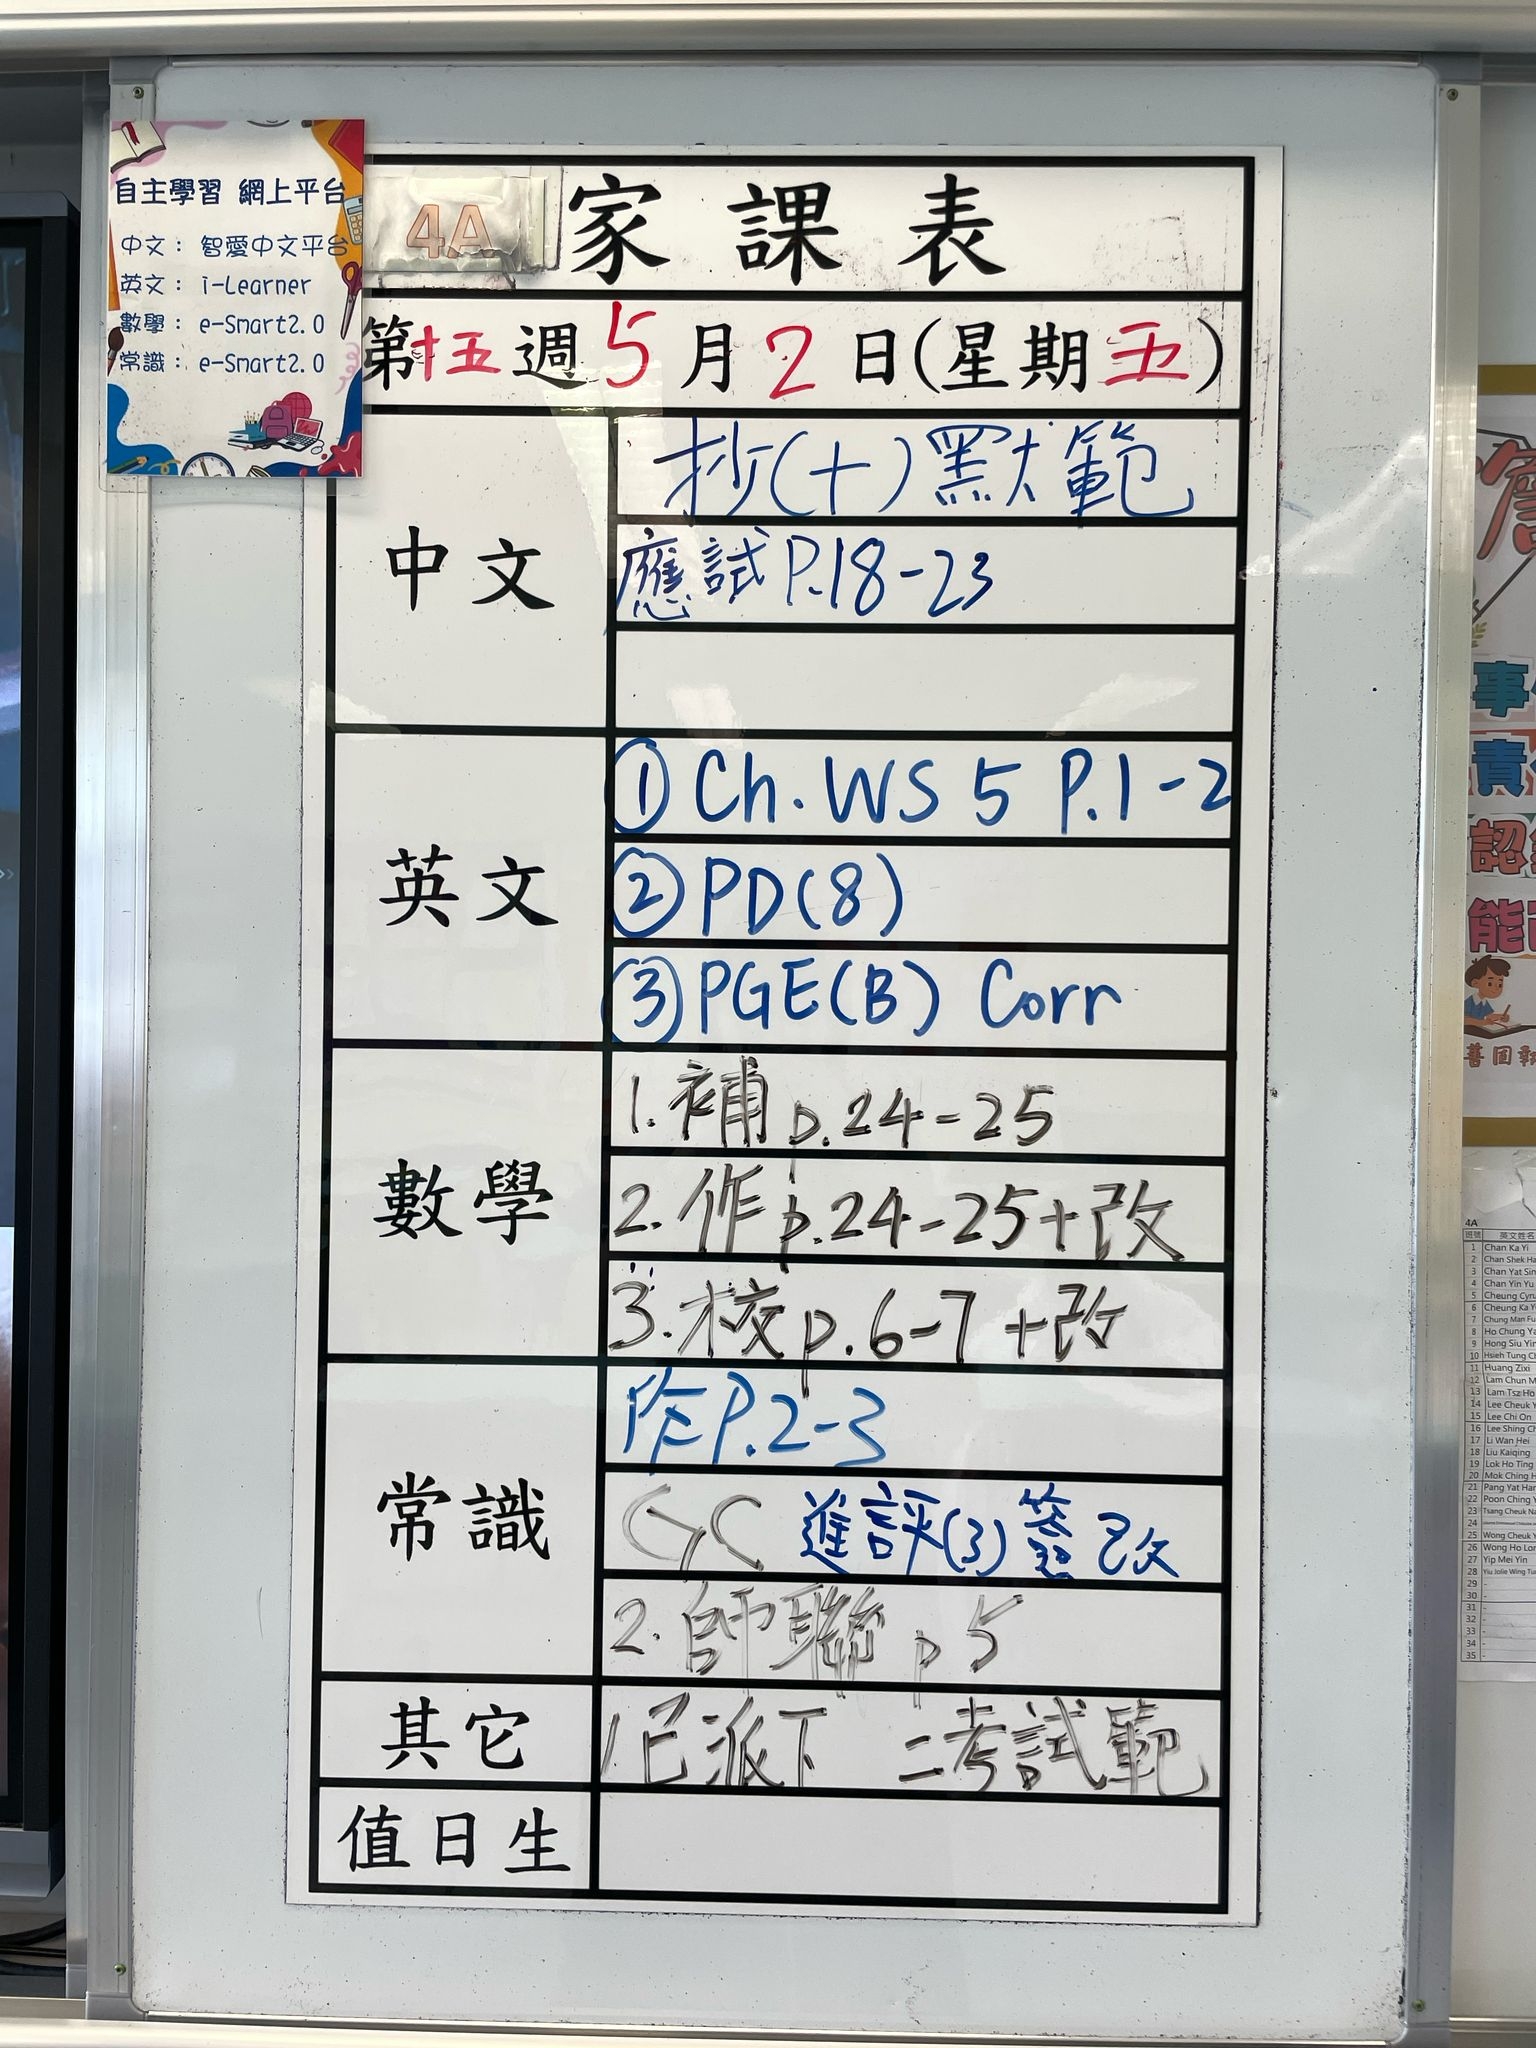 自主學習 網上平台
中文： 智愛中文平台
英文： i-Learner
數學： e-Smart2.0
常識： e-Smart2.0
4A 家課表
第十五週5月2日(星期五)
中文
抄(十)默範
應試P.18-23
英文
① Ch. WS 5 P.1-2
② PD(8)
③ PGE(B) Corr
數學
1. 補p.24-25
2. 作p.24-25+改
3. 校p.6-7+改
常識
作P.2-3
進評(3)簽改
2. 師聯p5
其它
1已派下 二考試範
值日生
事
責
認
能
4A
班號 英文姓名
1 Chan Ka Yi
2 Chan Shek Ha
3 Chan Yat Sin
4 Chan Yin Yu
5 Cheung Cyru
6 Cheung Ka Y
7 Chung Man Fu
8 Ho Chung Ya
9 Hong Siu Yin
10 Hsieh Tung Ch
11 Huang Zixi
12 Lam Chun M
13 Lam Tsz Ho
14 Lee Cheuk Y
15 Lee Chi On
16 Lee Shing Ch
17 Li Wan Hei
18 Liu Kaiqing
19 Lok Ho Ting
20 Mok Ching H
21 Pang Yat Han
22 Poon Ching Y
23 Tsang Cheuk Na
24
25 Wong Cheuk Y
26 Wong Ho Lon
27 Yip Mei Yin
28 Yiu Jolie Wing Tu
29 -
30 -
31 -
32 -
33 -
34 -
35 -